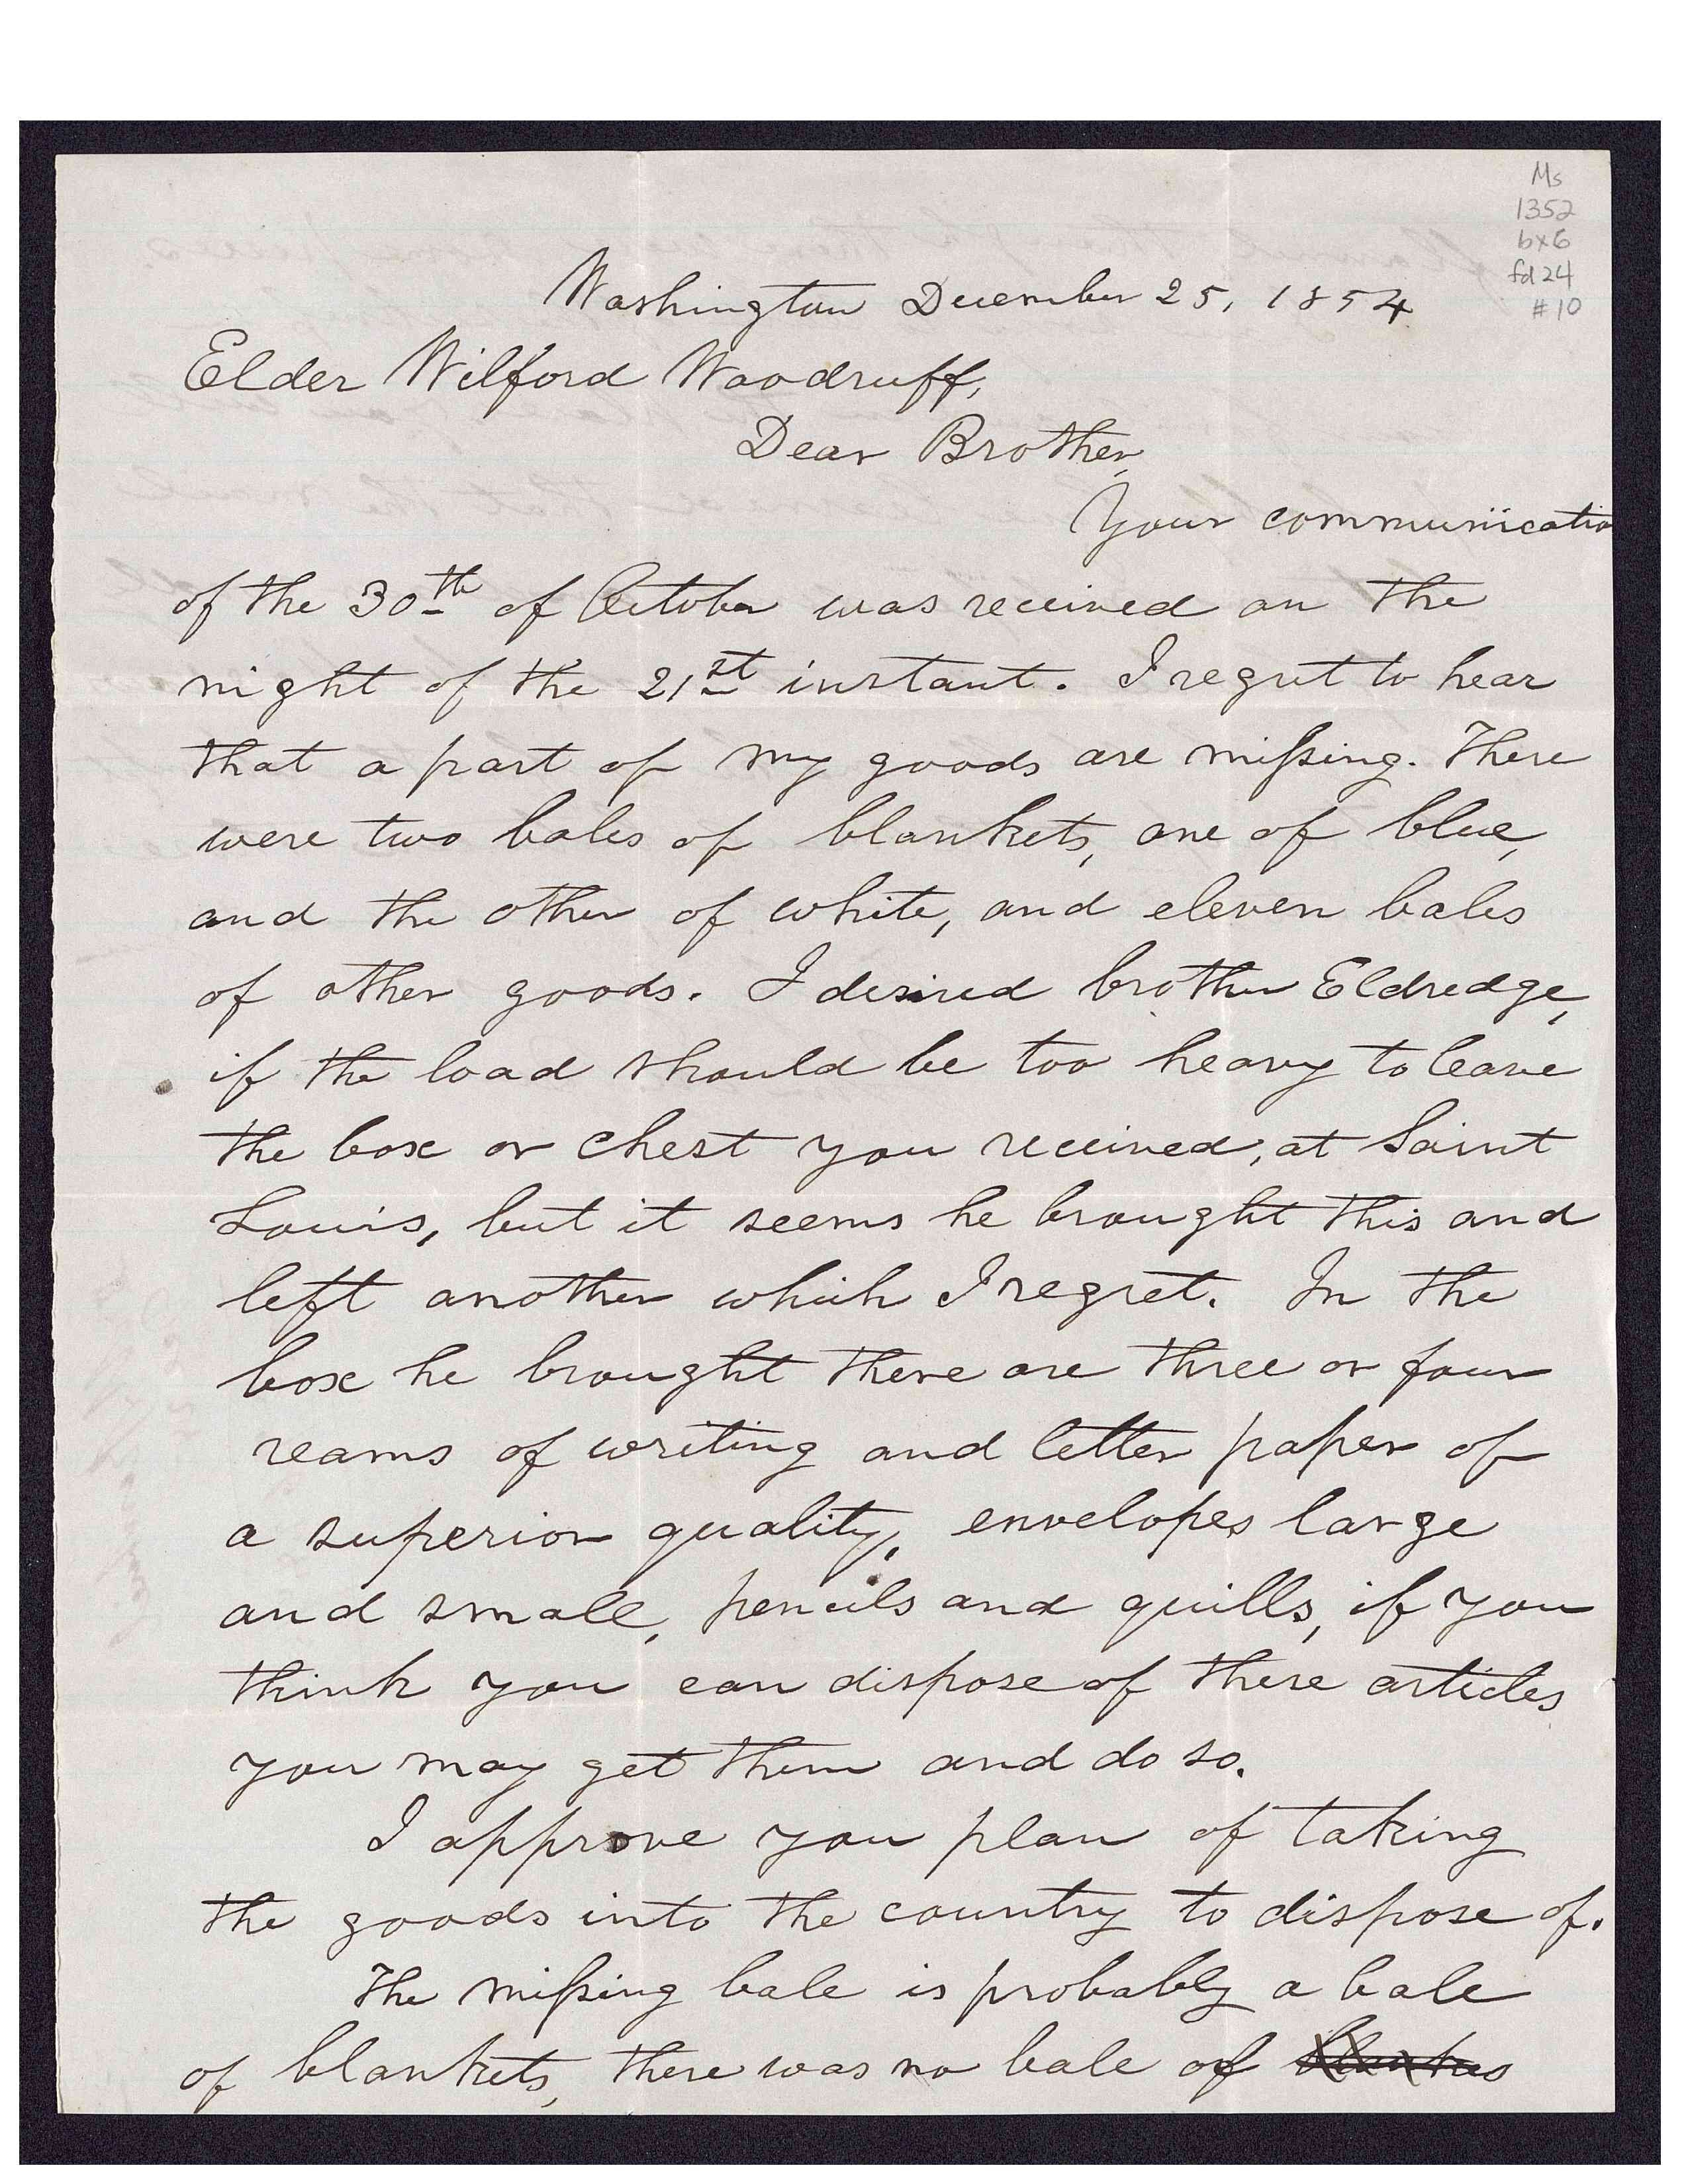 Ms
1352
bx6
fd 24
#10
Washington December 25, 1854
Elder Wilford Woodruff,
Dear Brother,
Your communicatio
of the 30th of October was received on the
night of the 21st instant. I regret to hear
that a part of my goods are miſsing. There
were two bales of blankets, one of blue,
and the other of white, and eleven bales
of other goods. I desired brother Eldredge,
if the load should be too heavy to leave
the box or chest you received, at Saint
Louis, but it seems he brought this and
left another which I regret. In the
box he brought there are three or four
reams of writing and letter paper of
a superior quality, envelopes large
and small, pencils and quills, if you
think you can dispose of these articles
you may get them and do so.
I approve you plan of taking
the goods into the country to dispose of.
The miſsing bale is probably a bale
of blankets, there was no bale of